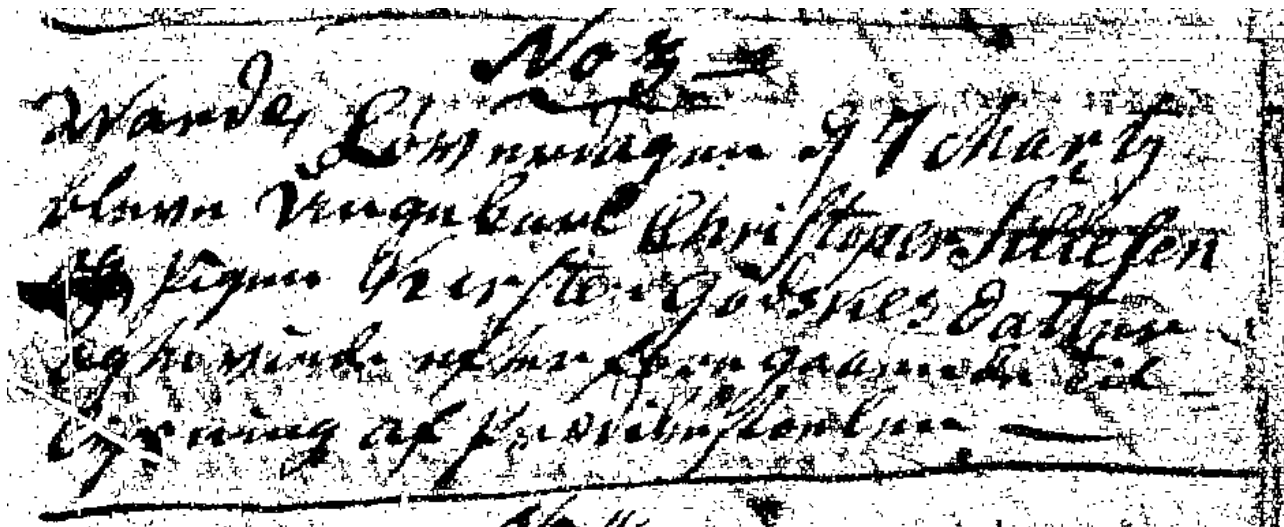 No 3
Warde, Löwerdagen d 7 Marty
bleve Unge Karl Christoper Sillesen
og pigen Kiersten Godskesdatter
ægteviede efter foregaaende til
lysning af prædikestoelen